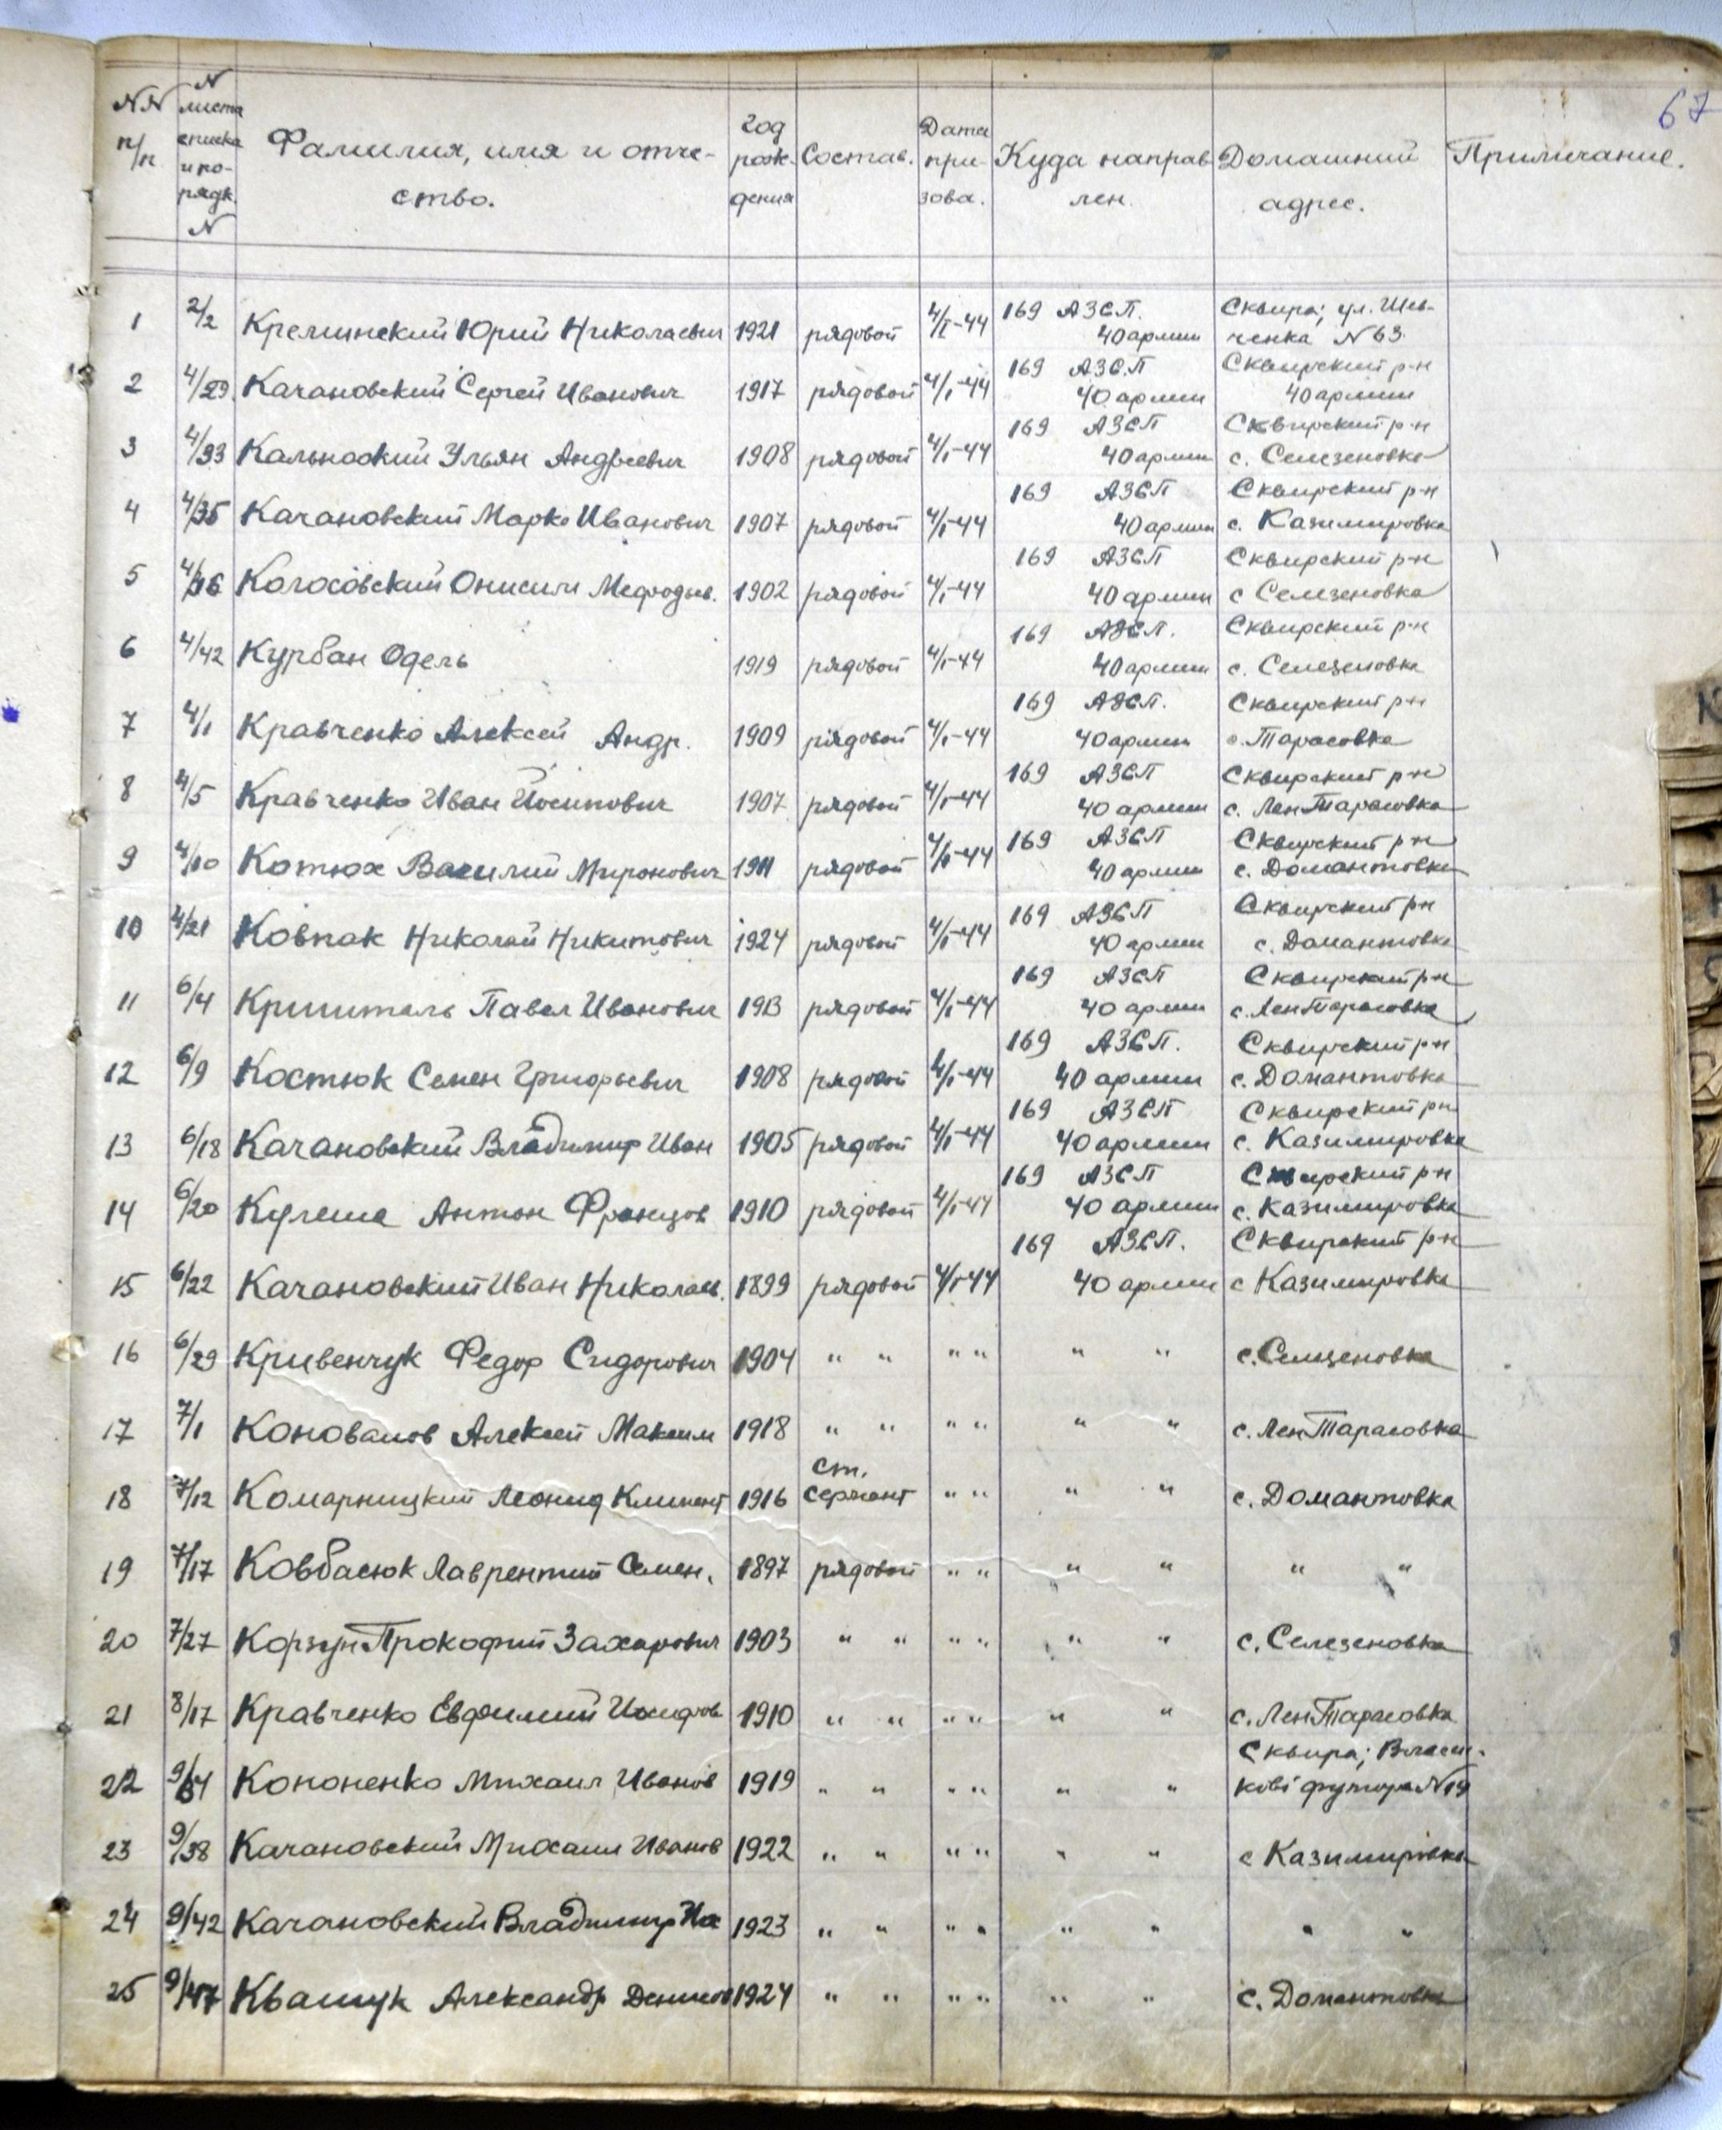 67
NN п/п N листа списка и порядк. N Фамилия, имя и отчество. Год рождения Состав. Дата призова. Куда направлен. Домашний адрес. Примечание.
1 2/2 Кремпский Юрий Николаевич 1921 рядовой 4/I-44 169 АЗСП. 40 армии Сквира; ул. Шевченка N 63.
2 4/29. Качановский Сергей Иванович 1917 рядовой 4/I-44 169 АЗСП 40 армии Сквирский р-н 40 армии
3 4/33 Ульян Андреевич 1908 рядовой 4/I-44 169 АЗСП 40 армии Сквирский р-н с. Селезеновка
4 4/35 Качановский Марко Иванович 1907 рядовой 4/I-44 169 АЗСП 40 армии Сквирский р-н с. Казимировка
5 4/36 Колосовский Онисим Мефодьев. 1902 рядовой 4/I-44 169 АЗСП 40 армии Сквирский р-н с Селезеновка
6 4/42 Курбан Одель 1919 рядовой 4/I-44 169 АЗСП. 40 армии Сквирский р-н с. Селезеновка
7 4/1 Кравченко Алексей Андр. 1909 рядовой 4/I-44 169 АЗСП. 40 армии Сквирский р-н с. Тарасовка
8 4/5 Кравченко Иван Йосипович 1907 рядовой 4/I-44 169 АЗСП 40 армии Сквирский р-н с. ЛенТарасовка
9 4/10 Котюх Василий Миронович 1911 рядовой 4/I-44 169 АЗСП 40 армии Сквирский р-н с. Домантовка
10 4/21 Ковпак Николай Никитович 1924 рядовой 4/I-44 169 АЗСП 40 армии Сквирский р-н с. Домантовка
11 6/4 Павел Иванович 1913 рядовой 4/I-44 169 АЗСП 40 армии Сквирский р-н с. ЛенТарасовка
12 6/9 Костюк Семен Григорьевич 1908 рядовой 4/I-44 169 АЗСП. 40 армии Сквирский р-н с. Домантовка
13 6/18 Качановский Владимир Иван 1905 рядовой 4/I-44 169 АЗСП 40 армии Сквирский р-н с. Казимировка
14 6/20 Кулеша Антон Францов 1910 рядовой 4/I-44 169 АЗСП 40 армии Сквирский р-н с. Казимировка
15 6/22 Качановский Иван Николаев. 1899 рядовой 4/I-44 169 АЗСП. 40 армии Сквирский р-н с Казимировка
16 6/29 Кривенчук Федор Сидорович 1904 " " " " " " с. Селезеновка
17 7/1 Коновалов Алексей Максим 1918 " " " " " " с. ЛенТарасовка
18 7/12 Комарницкий Леонид Климент 1916 ст. сержант " " " " с. Домантовка
19 7/17 Ковбасюк Лаврентий Семен. 1897 рядовой " " " " " "
20 7/27 Корзун Прокофий Захарович 1903 " " " " " " с. Селезеновка
21 8/17 Кравченко Евфимий Иосифов 1910 " " " " " " с. ЛенТарасовка
22 Кононенко Михаил Иванов 1919 " " " " " " Сквира; N 14
23 9/38 Качановский Михаил Иванов 1922 " " " " " " с Казимирівка
24 9/42 Качановский Владимир 1923 " " " " " " " "
25 9/47 Квашук Александр Денисов 1924 " " " " " " с. Домантовка